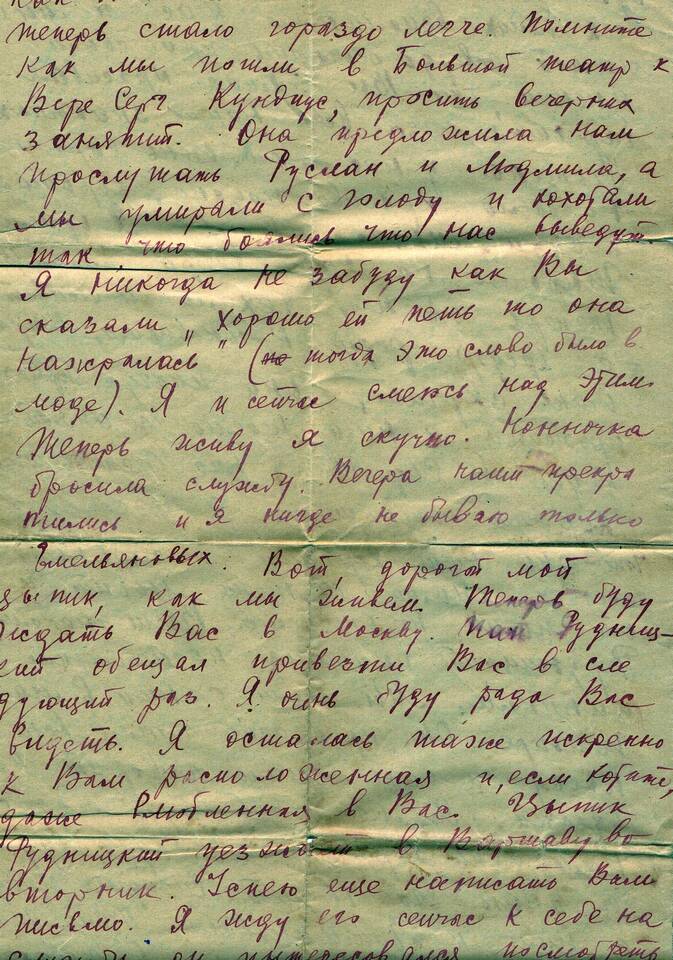 теперь стало гораздо легче. Помните
как мы пошли в Большой театр к
Вере Серг Кундиус, просить вечерних
занятий. Она предложила нам
прослушать Руслан и Людмила, а
мы умирали с голоду и хохотали
так что боялись что нас выведут.
Я никогда не забуду как Вы
сказали „хорошо ей петь то она
нажралась" (но тогда это слово было в
моде). Я и сейчас смеюсь над этим.
Теперь живу я скучно. Нонночка
бросила службу. Вечера наши прекра
тились и я нигде не бываю только
Емельяновых. Вот, дорогой мой
цыпик, как мы живем. Теперь буду
ждать Вас в Москву. Пан Рудниц-
кий обещал привезти Вас в сле
дующий раз. Я очень буду рада Вас
видеть. Я осталась также искренно
к Вам расположенная и, если хотите,
даже влюбленная в Вас. Цыпик
Рудницкий уезжает в Варшаву во
вторник. Успею еще написать Вам
письмо. Я жду его сейчас к себе на
службу он интересовался посмотреть